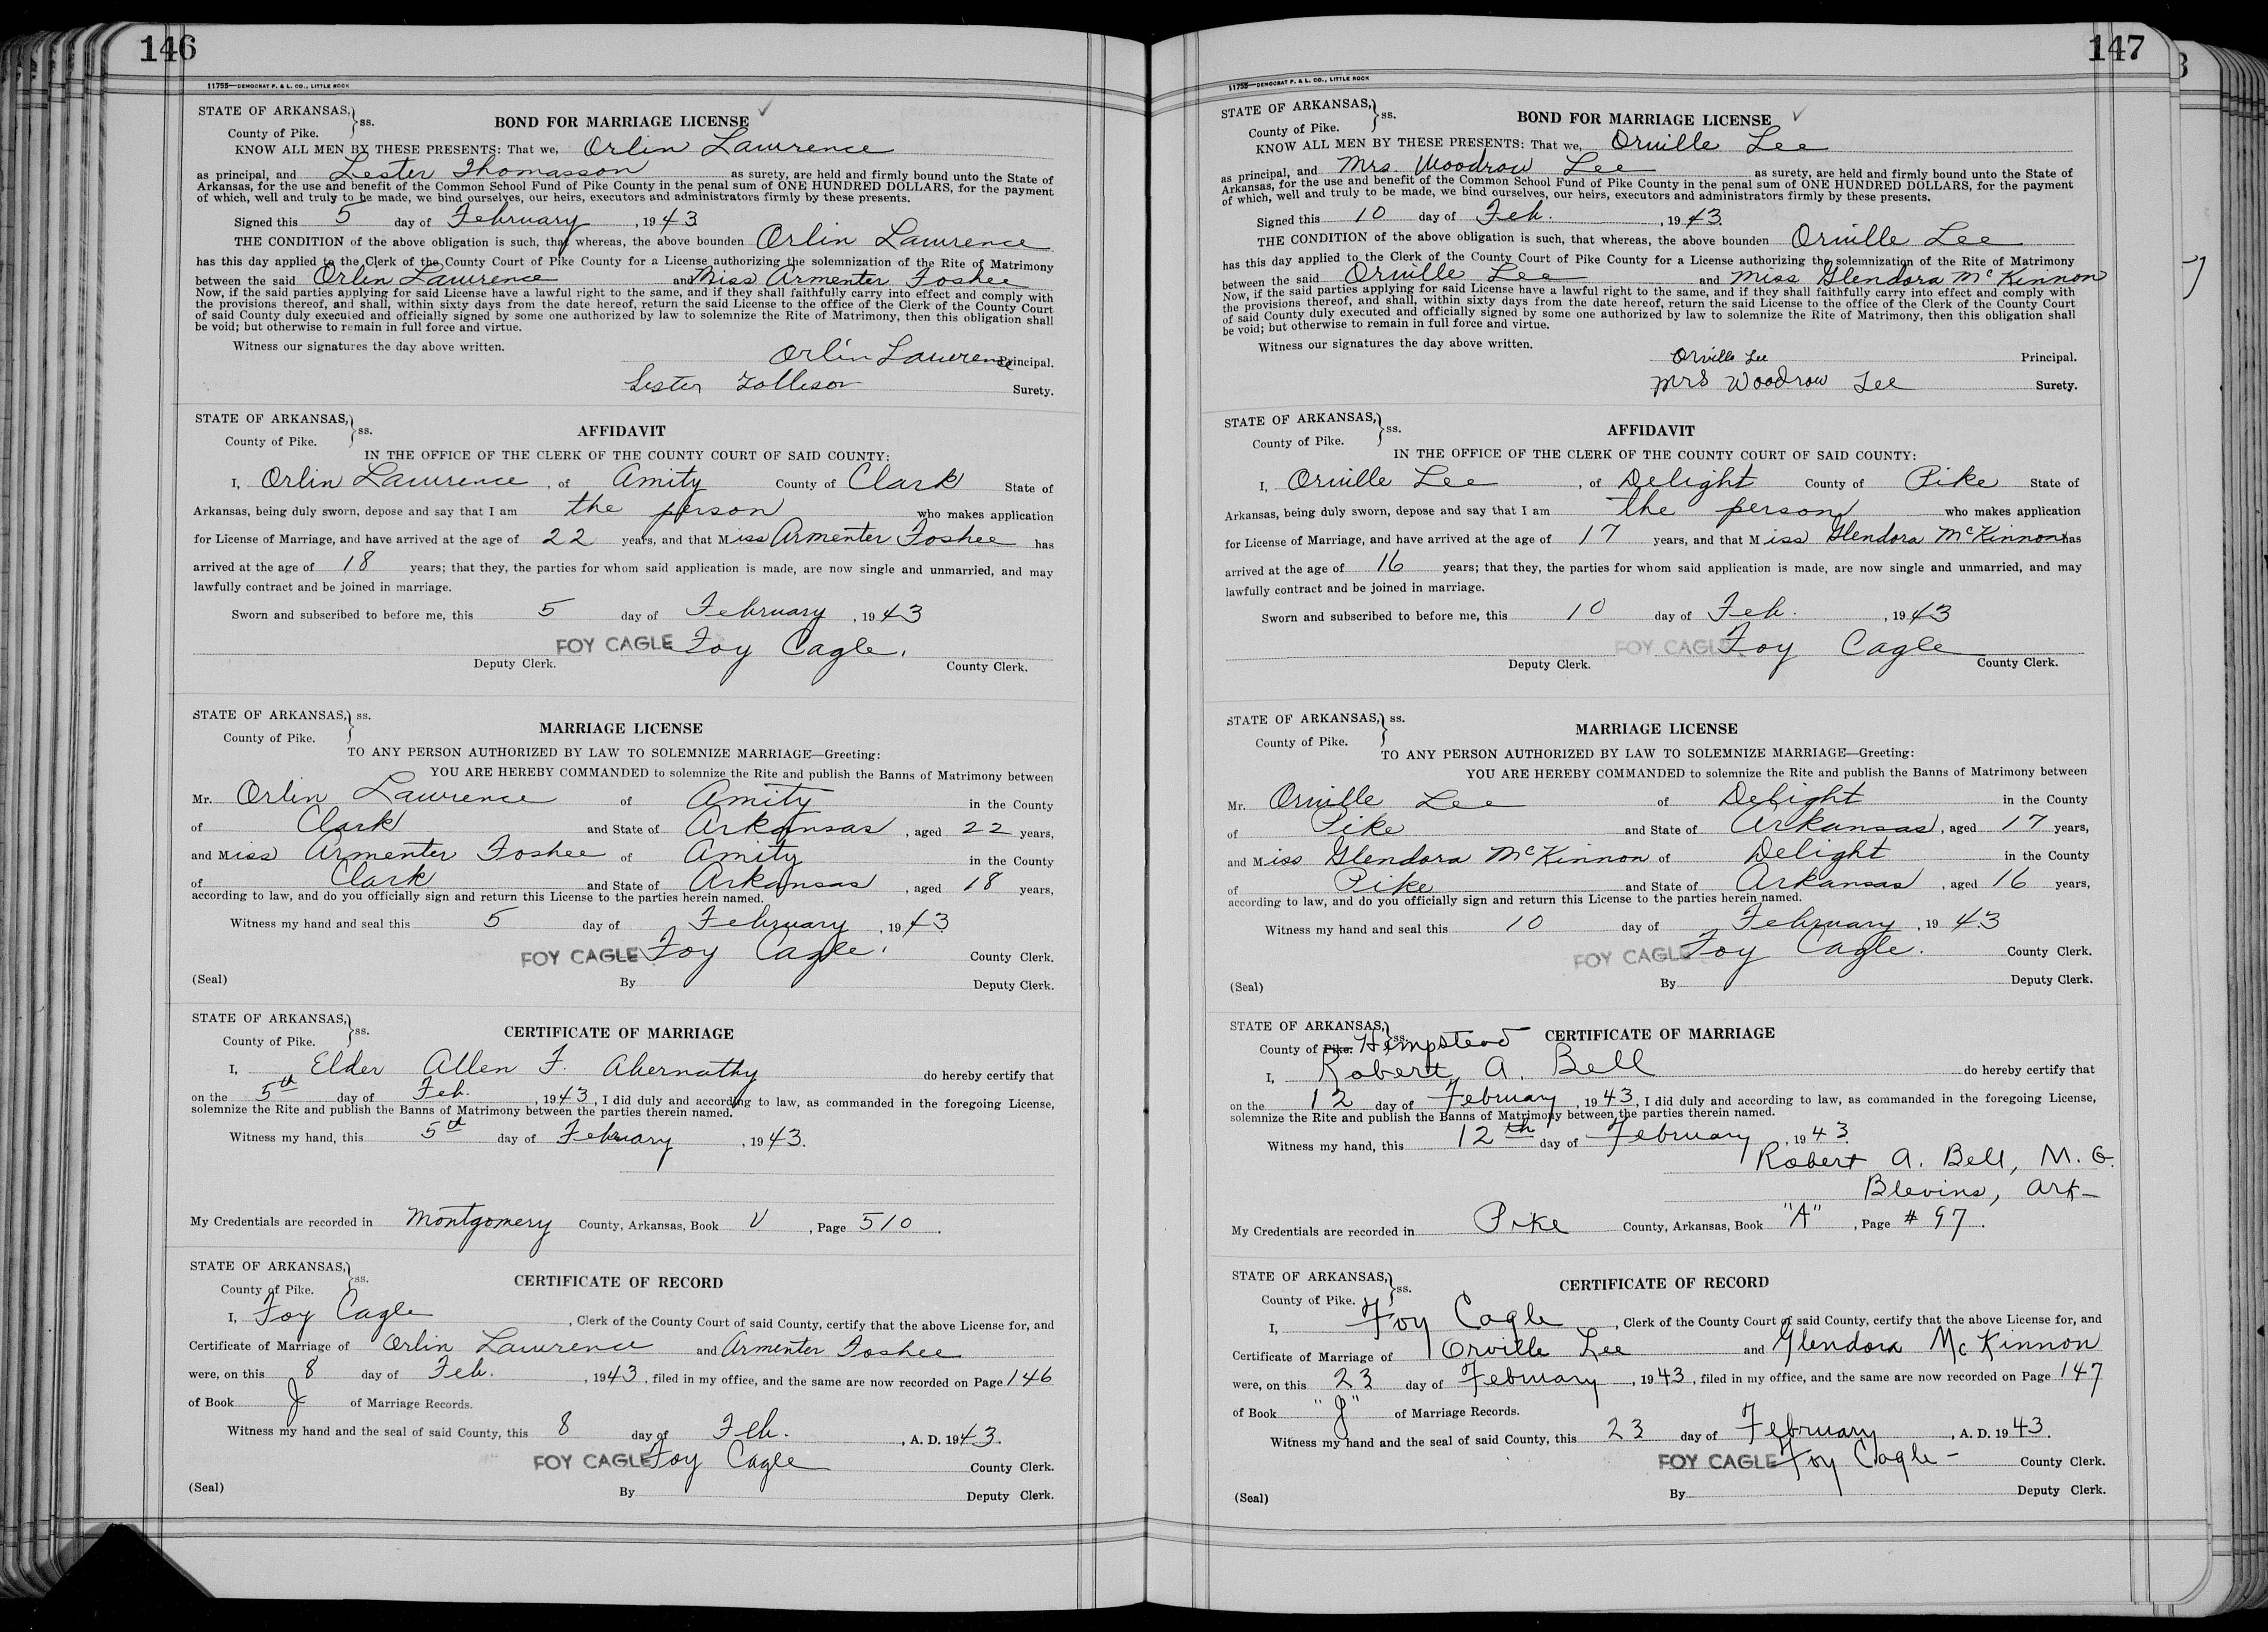 146
11755—DEMOCRAT P. & L. CO., LITTLE ROCK
STATE OF ARKANSAS, } ss.
County of Pike.
BOND FOR MARRIAGE LICENSE ✓
KNOW ALL MEN BY THESE PRESENTS: That we, Orlin Lawrence
as principal, and Lester Thomasson as surety, are held and firmly bound unto the State of
Arkansas, for the use and benefit of the Common School Fund of Pike County in the penal sum of ONE HUNDRED DOLLARS, for the payment
of which, well and truly to be made, we bind ourselves, our heirs, executors and administrators firmly by these presents.
Signed this 5 day of February, 1943
THE CONDITION of the above obligation is such, that whereas, the above bounden Orlin Lawrence
has this day applied to the Clerk of the County Court of Pike County for a License authorizing the solemnization of the Rite of Matrimony
between the said Orlin Lawrence and Miss Armenter Foshee
Now, if the said parties applying for said License have a lawful right to the same, and if they shall faithfully carry into effect and comply with
the provisions thereof, and shall, within sixty days from the date hereof, return the said License to the office of the Clerk of the County Court
of said County duly executed and officially signed by some one authorized by law to solemnize the Rite of Matrimony, then this obligation shall
be void; but otherwise to remain in full force and virtue.
Witness our signatures the day above written.
Orlin Lawrence Principal.
Lester Surety.
STATE OF ARKANSAS, } ss.
County of Pike.
AFFIDAVIT
IN THE OFFICE OF THE CLERK OF THE COUNTY COURT OF SAID COUNTY:
I, Orlin Lawrence, of Amity County of Clark State of
Arkansas, being duly sworn, depose and say that I am the person who makes application
for License of Marriage, and have arrived at the age of 22 years, and that Miss Armenter Foshee has
arrived at the age of 18 years; that they, the parties for whom said application is made, are now single and unmarried, and may
lawfully contract and be joined in marriage.
Sworn and subscribed to before me, this 5 day of February, 1943
FOY CAGLE Foy Cagle.
Deputy Clerk. County Clerk.
STATE OF ARKANSAS, } ss.
County of Pike.
MARRIAGE LICENSE
TO ANY PERSON AUTHORIZED BY LAW TO SOLEMNIZE MARRIAGE—Greeting:
YOU ARE HEREBY COMMANDED to solemnize the Rite and publish the Banns of Matrimony between
Mr. Orlin Lawrence of Amity in the County
of Clark and State of Arkansas, aged 22 years,
and Miss Armenter Foshee of Amity in the County
of Clark and State of Arkansas, aged 18 years,
according to law, and do you officially sign and return this License to the parties herein named.
Witness my hand and seal this 5 day of February, 1943
FOY CAGLE Foy Cagle. County Clerk.
(Seal) By Deputy Clerk.
STATE OF ARKANSAS, } ss.
County of Pike.
CERTIFICATE OF MARRIAGE
I, Elder Allen F. Abernathy do hereby certify that
on the 5th day of Feb., 1943, I did duly and according to law, as commanded in the foregoing License,
solemnize the Rite and publish the Banns of Matrimony between the parties therein named.
Witness my hand, this 5th day of February, 1943.
My Credentials are recorded in Montgomery County, Arkansas, Book V, Page 510.
STATE OF ARKANSAS, } ss.
County of Pike.
CERTIFICATE OF RECORD
I, Foy Cagle, Clerk of the County Court of said County, certify that the above License for, and
Certificate of Marriage of Orlin Lawrence and Armenter Foshee
were, on this 8 day of Feb., 1943, filed in my office, and the same are now recorded on Page 146
of Book J of Marriage Records.
Witness my hand and the seal of said County, this 8 day of Feb., A. D. 1943.
FOY CAGLE Foy Cagle County Clerk.
(Seal) By Deputy Clerk.
147
11755—DEMOCRAT P. & L. CO., LITTLE ROCK
STATE OF ARKANSAS, } ss.
County of Pike.
BOND FOR MARRIAGE LICENSE ✓
KNOW ALL MEN BY THESE PRESENTS: That we, Orville Lee
as principal, and Mrs. Woodrow Lee as surety, are held and firmly bound unto the State of
Arkansas, for the use and benefit of the Common School Fund of Pike County in the penal sum of ONE HUNDRED DOLLARS, for the payment
of which, well and truly to be made, we bind ourselves, our heirs, executors and administrators firmly by these presents.
Signed this 10 day of Feb., 1943.
THE CONDITION of the above obligation is such, that whereas, the above bounden Orville Lee
has this day applied to the Clerk of the County Court of Pike County for a License authorizing the solemnization of the Rite of Matrimony
between the said Orville Lee and Miss Glendora McKinnon
Now, if the said parties applying for said License have a lawful right to the same, and if they shall faithfully carry into effect and comply with
the provisions thereof, and shall, within sixty days from the date hereof, return the said License to the office of the Clerk of the County Court
of said County duly executed and officially signed by some one authorized by law to solemnize the Rite of Matrimony, then this obligation shall
be void; but otherwise to remain in full force and virtue.
Witness our signatures the day above written.
Orville Lee Principal.
Mrs Woodrow Lee Surety.
STATE OF ARKANSAS, } ss.
County of Pike.
AFFIDAVIT
IN THE OFFICE OF THE CLERK OF THE COUNTY COURT OF SAID COUNTY:
I, Orville Lee, of Delight County of Pike State of
Arkansas, being duly sworn, depose and say that I am the person who makes application
for License of Marriage, and have arrived at the age of 17 years, and that Miss Glendora McKinnon has
arrived at the age of 16 years; that they, the parties for whom said application is made, are now single and unmarried, and may
lawfully contract and be joined in marriage.
Sworn and subscribed to before me, this 10 day of Feb., 1943
FOY CAGLE Foy Cagle
Deputy Clerk. County Clerk.
STATE OF ARKANSAS, } ss.
County of Pike.
MARRIAGE LICENSE
TO ANY PERSON AUTHORIZED BY LAW TO SOLEMNIZE MARRIAGE—Greeting:
YOU ARE HEREBY COMMANDED to solemnize the Rite and publish the Banns of Matrimony between
Mr. Orville Lee of Delight in the County
of Pike and State of Arkansas, aged 17 years,
and Miss Glendora McKinnon of Delight in the County
of Pike and State of Arkansas, aged 16 years,
according to law, and do you officially sign and return this License to the parties herein named.
Witness my hand and seal this 10 day of February, 1943
FOY CAGLE Foy Cagle. County Clerk.
(Seal) By Deputy Clerk.
STATE OF ARKANSAS, } ss.
County of Pike. Hempstead
CERTIFICATE OF MARRIAGE
I, Robert A. Bell do hereby certify that
on the 12 day of February, 1943, I did duly and according to law, as commanded in the foregoing License,
solemnize the Rite and publish the Banns of Matrimony between the parties therein named.
Witness my hand, this 12th day of February, 1943
Robert A. Bell, M. G.
Blevins, Ark-
My Credentials are recorded in Pike County, Arkansas, Book "A", Page # 97.
STATE OF ARKANSAS, } ss.
County of Pike.
CERTIFICATE OF RECORD
I, Foy Cagle, Clerk of the County Court of said County, certify that the above License for, and
Certificate of Marriage of Orville Lee and Glendora McKinnon
were, on this 23 day of February, 1943, filed in my office, and the same are now recorded on Page 147
of Book "J" of Marriage Records.
Witness my hand and the seal of said County, this 23 day of February, A. D. 1943.
FOY CAGLE Foy Cagle - County Clerk.
(Seal) By Deputy Clerk.